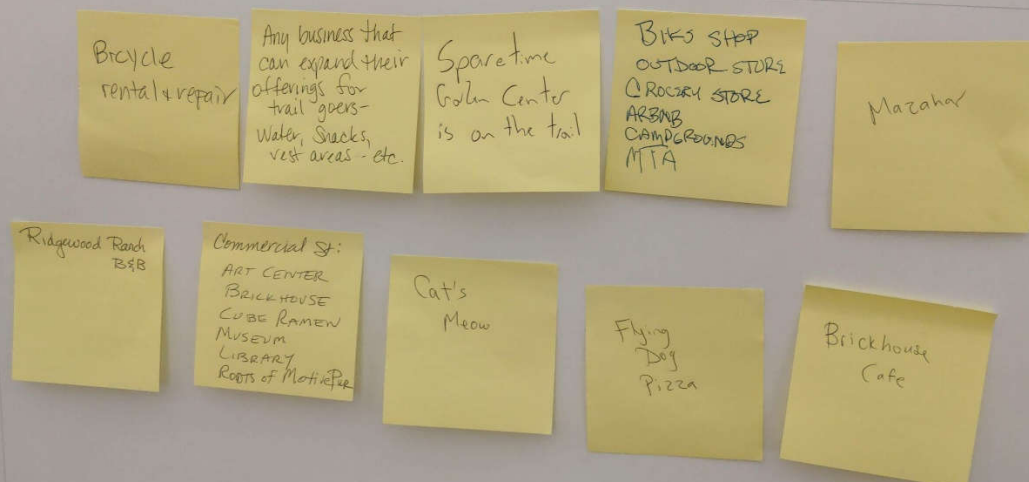 Bicycle
rental & repair
Any business that
can expand their
offerings for
trail goers-
Water, Snacks,
rest areas - etc.
Sparetime
Center
is on the trail
BIKE SHOP
OUTDOOR STORE
GROCERY STORE
AIRBNB
CAMPGROUNDS
MTA
Mazahar
Ridgewood Ranch
B&B
Commercial St:
ART CENTER
BRICKHOUSE
CUBE RAMEN
MUSEUM
LIBRARY
ROOTS of Motive Pwr
Cat's
Meow
Flying
Dog
Pizza
Brickhouse
Cafe